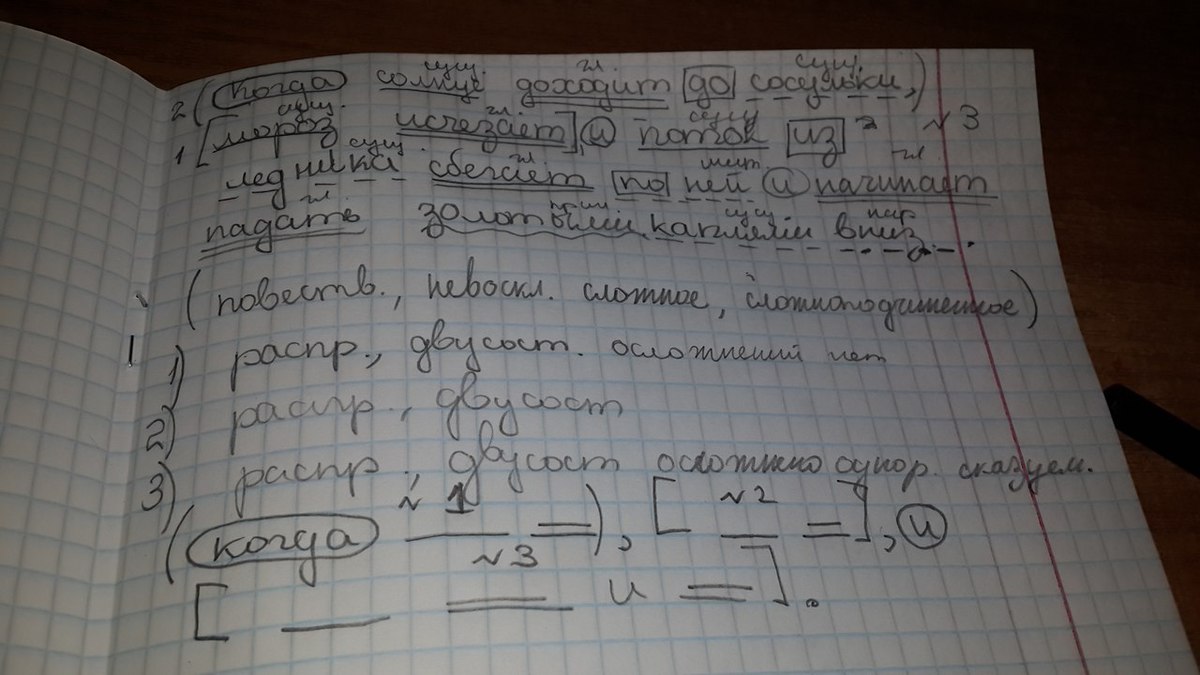 сущ. гл. сущ.
2 (Когда солнце доходит до сосульки,)
сущ. гл. сущ.
1 [мороз исчезает], и поток из 2 ~ 3
сущ. гл. мест. гл.
ледника сбегает по ней и начинает
гл. прил. сущ. нар.
падать золотыми каплями вниз.
(повеств., невоскл. сложное, сложноподчиненное)
1) распр., двусост. осложнений нет
2) распр., двусост
3) распр., двусост осложнено однор. сказуем.
~ 1 ~2
(когда ), [ ], и
~3
[ и ].